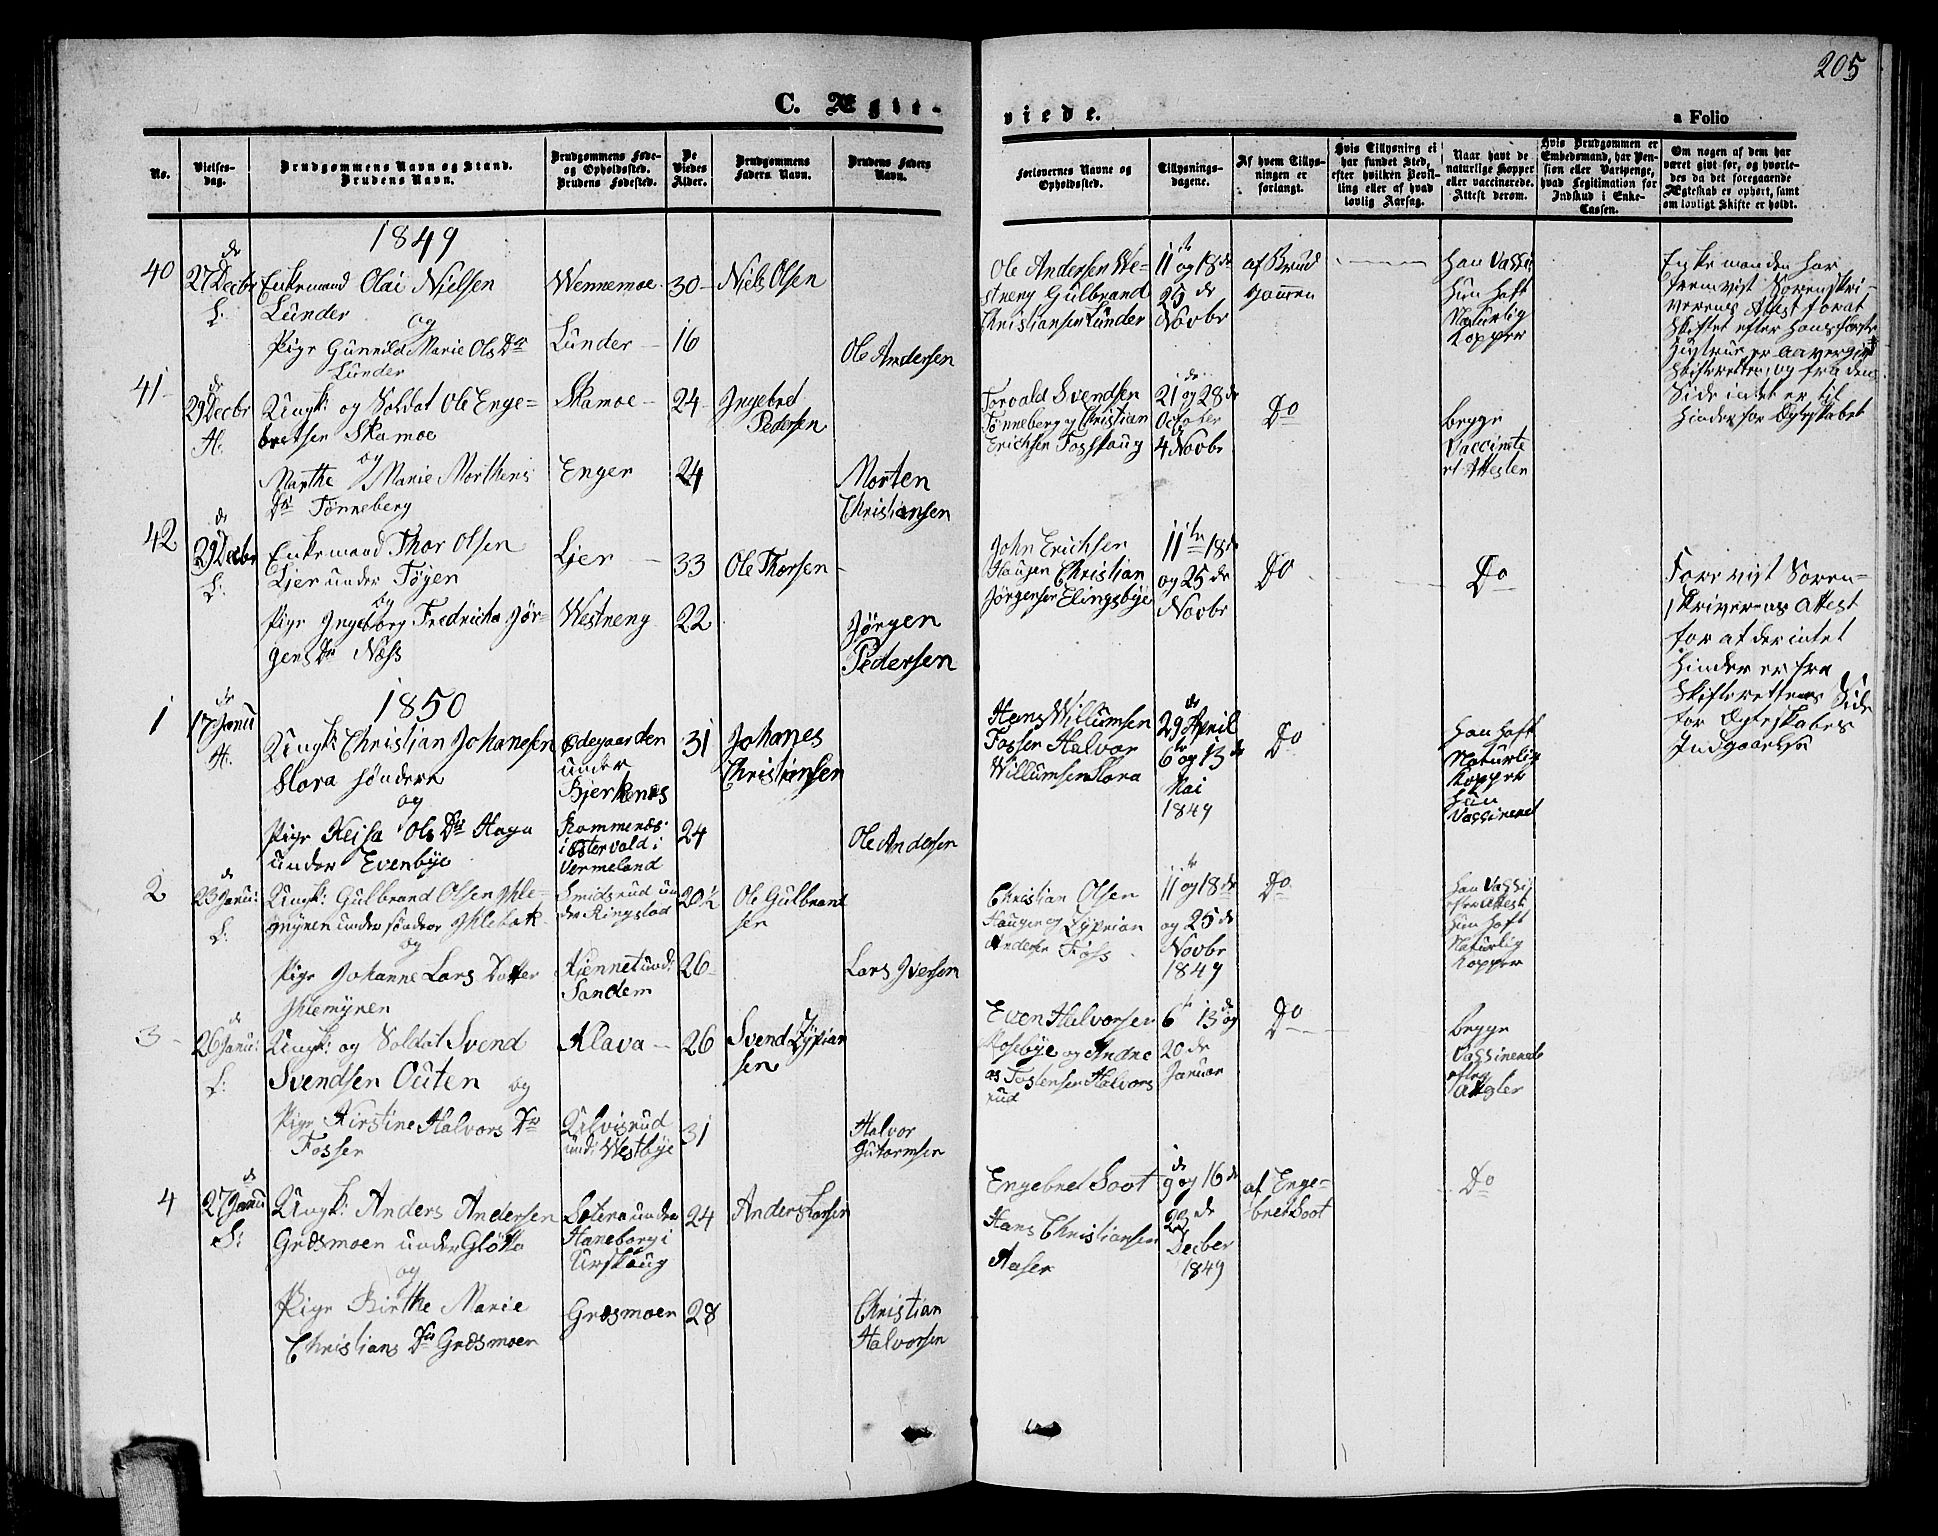 205
C. Ægte-
viede.
a Folio
No.
Vielses-
dag.
Brudgommens Navn og Stand.
Brudens Navn.
Brudgommens Føde-
og Opholdssted.
Brudens Fødested.
De
Viedes
Alder.
Brudgommens
Faders Navn.
Brudens Faders
Navn.
Forlovernes Navne og
Opholdssted.
Tillysnings-
dagene.
Af hvem Tillys-
ningen er
forlangt.
Hvis Tillysning ei
har fundet Sted,
efter hvilken Bevil-
ling eller af hvad
lovlig Aarsag.
Naar havt de
naturlige Kopper
eller vaccinerede.
Attest derom.
Hvis Brudgommen er
Embedsmand, har Pen-
sion eller Vartpenge,
hvad Legitimation for
Indskud i Enke-
Cassen.
Om nogen af dem har
været gift før, og hvorle-
des da det foregaaende
Ægteskab er ophørt, samt
om lovligt Skifte er holdt.
1849
40
27 de Decbr
L:
Enkemand Olai Nielsen
Lunder
og
Pige Gunnild Marie Ols Dr
Lunder
Wennemoe
Lunder
30
16
Niels Olsen
Ole Andersen
Ole Andersen We-
stneng Gulbrand
Christiansen Lunder
11te og 18de
25de
Novbr
af Brud
gommen
Han Vassi
Hun haft
Naturlig
Kopper
Enkemanden har
fremvist Sorenskri-
verens Attest for at
Skiftet efter Hans første
Hustrue er
Skifteretten, og fra dens
Side intet er til
Hinder for Egteskabet
41
29 de Decbr
H.
Ungk: og Soldat Ole Enge-
bretsen Skamoe
og
Marthe Marie Morthens
Dr Tønneberg
Skamoe
Enger
24
24
Ingebret
Pedersen
Morten
Christiansen
Torvald Svendsen
Tønneberg og Christian
Erichsen Fosshaug
21 og 28de
October
4 Novbr
Do
begge
Vaccinete
Attester
42
29 de Decbr
L:
Enkemand Thor Olsen
Ljer under Tøyen
og
Pige Ingeborg Fredricha Jør-
gens Dr Næss
Ljer
Westneng
33
22
Ole Thorsen
Jørgen
Pedersen
John Erichsen
Haugen Christian
Jørgensen Elingsbye
11te 18de
og 25de
Novbr
Do
Do
Forevist Soren-
skriverens Attest
for at der intet
Hinder er fra
Skifterettens Side
for Egteskabets
Indgaaelse
1850
1
17 de Janu
H.
Ungk: Christian Johanesen
Slora søndere
og
Pige Keisa Ols Dr Haga
under Evenbye
Ødegaarden
under
Bjerkenes
Rommenæs
i Østervald i
Vermeland
31
24
Johanes
Christiansen
Ole Andersen
Hans Willumsen
Fosser Halvor
Willumsen Slora
29de April
6te og 13de
Mai
1849
Do
Han haft
Naturlig
Kopper
Hun
Vassineret
2
23 de Janu:
L:
Ungk: Gulbrand Olsen Ihle-
myren under søndere Ihlebek
og
Pige Johanne Lars Datter
Ihlemyren
Smidsrud un
der Ringstad
Kjennet und:
Sandem
20½
26
Ole Gulbrand
sen
Lars Iversen
Christian Olsen
Haugen og Zyprian
Andersen Foss
11te og 18de
og 25de
Novbr
1849
Do
Han Vassi
Attest
Hun haft
Naturlig
Kopper
3
26 de Janu:
L:
Ungk: og Soldat Svend
Svendsen Outen og
Pige Kirstine Halvors Dr
Fosser
Klava
Kilvisrud
und: Westbye
26
31
Svend Zyprian
sen
Halvor
Gutormsen
Even Halvorsen
Rosebye og Andre
as Tostensen Halvors
rud
6te 13de og
20de
Januar
Do
begge
Vassinerede
efter
Attester
4
27 de Janu
S:
Ungk: Anders Andersen
Græsmoen under Gløtta
og
Pige Birthe Marie
Christians Dr Græsmoen
Lotern under
Haneborg i
Urskoug
Græsmoen
24
28
Anders Larsen
Christian
Halvorsen
Engebret Soot
Hans Christiansen
Aaser
9de og 16de
23de
Decber
1849
af Enge-
bret Soot
Do